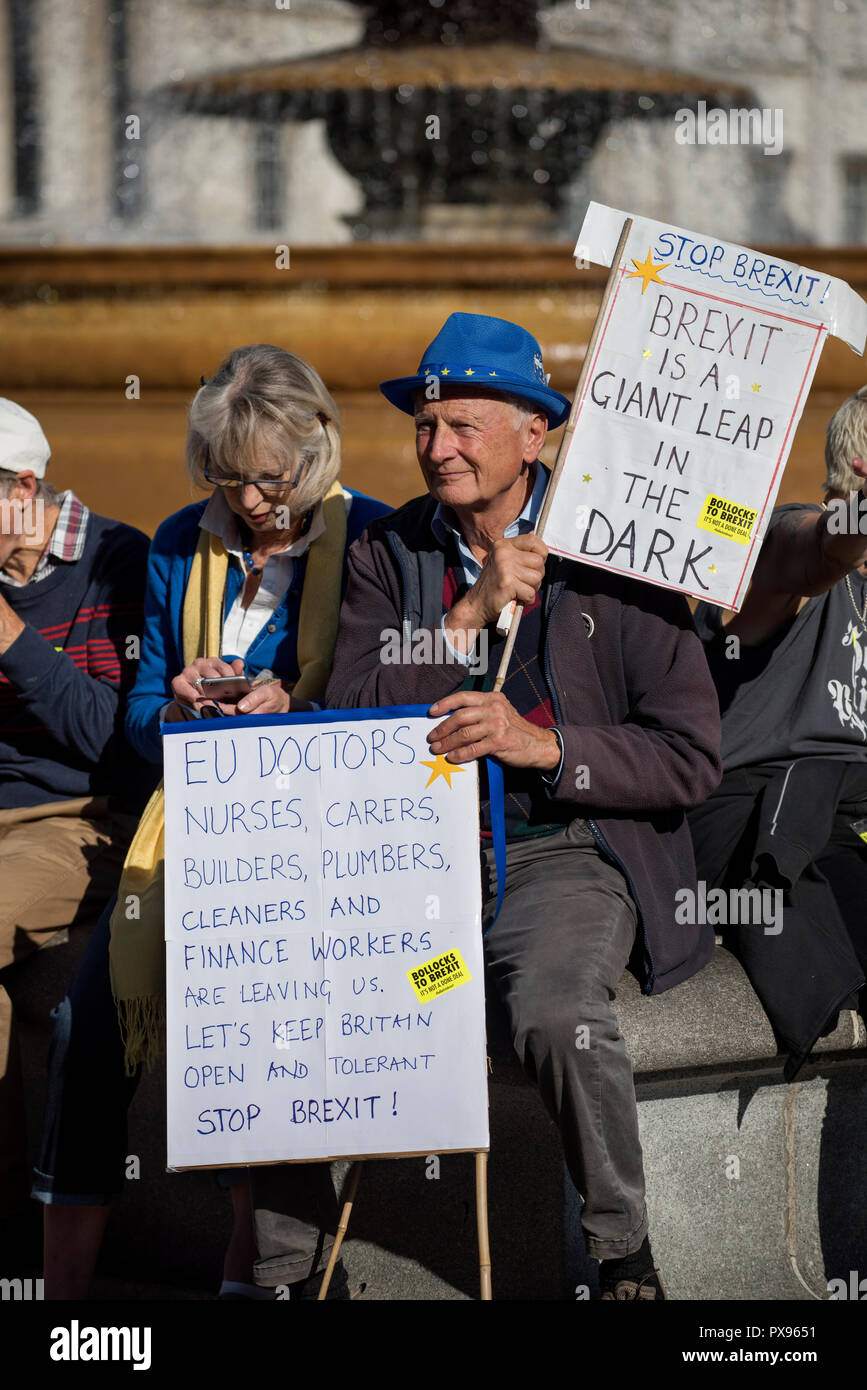 STOP BREXIT!
BREXIT
IS A
GIANT LEAP
IN
THE
DARK
BOLLOCKS
TO BREXIT
IT'S NOT A DONE DEAL
EU DOCTORS
NURSES, CARERS,
BUILDERS, PLUMBERS,
CLEANERS AND
FINANCE WORKERS
ARE LEAVING US.
LET'S KEEP BRITAIN
OPEN AND TOLERANT
STOP BREXIT!
BOLLOCKS
TO BREXIT
IT'S NOT A DONE DEAL
a
alamy
Image ID: PX9651
www.alamy.com